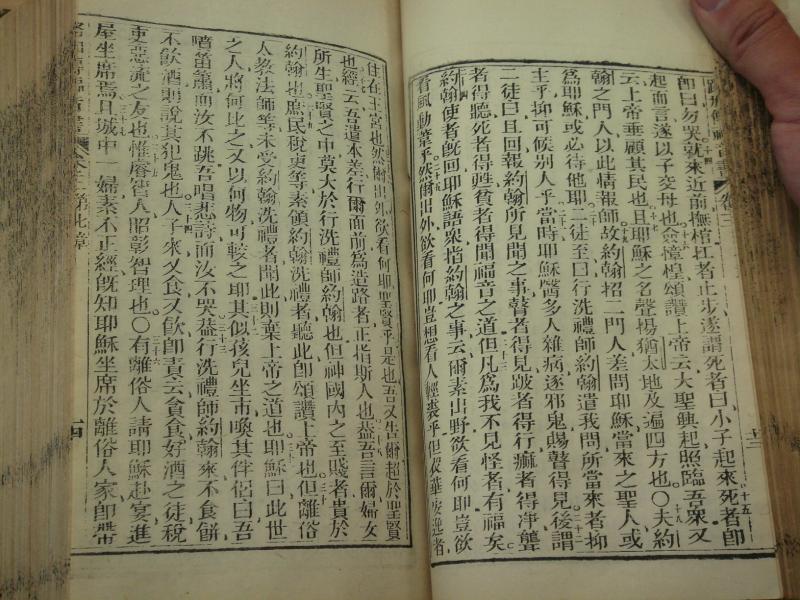 卽曰勿哭就來近前撫棺扛者止步遂謂死者曰小子起來死者卽
起而言遂以子交母也僉憧惶頌讚上帝云大聖興起照臨吾衆又
云上帝垂顧其民也且耶穌之名聲揚猶太地及遍四方也〇夫約
翰之門人以此情報師故約翰招二門人差問耶穌當來之聖人或
爲耶穌或必待他耶二徒至曰行洗禮師約翰遣我問所當來者抑
主乎抑可候別人乎當時耶穌醫多人雜病逐邪鬼賜瞽得見後謂
二徒曰且回報約翰所見聞之事瞽者得見跛者得行癩者得淨聾
者得聽死者得甦貧者得聞福音之道但凡爲我不見怪者有福矣
約翰使者旣回耶穌語衆指約翰之事云爾素出野欲看何耶豈欲
看風動葦乎然爾出外欲看何耶豈想看人輕裘乎但衣華
住在王宮也然爾出外欲看何耶聖賢乎是也吾又告爾超於聖賢
也經云吾遣本差行爾面前爲造路者正指斯人也蓋吾言爾婦女
所生聖賢之中莫大於行洗禮師約翰也但神國內之至賤者貴於
約翰也庶民稅吏等素領約翰洗禮者聽此卽頌讚上帝也但離俗
人敎法師等未受約翰洗禮者聞此則棄上帝之道也耶穌曰此世
之人將何比之又以何物可較之耶其似孩兒坐市喚其伴侶曰吾
嘈笛簫而汝不跳吾唱悲詩而汝不哭蓋行洗禮師約翰來不食餅
不飮酒則說其犯鬼也人子來又食又飮卽責云貪食好酒之徒稅
吏惡流之友也惟睿智人昭彰智理也〇有離俗人請耶穌赴宴進
屋坐席焉且城中一婦素不正經旣知耶穌坐席於離俗人家卽帶